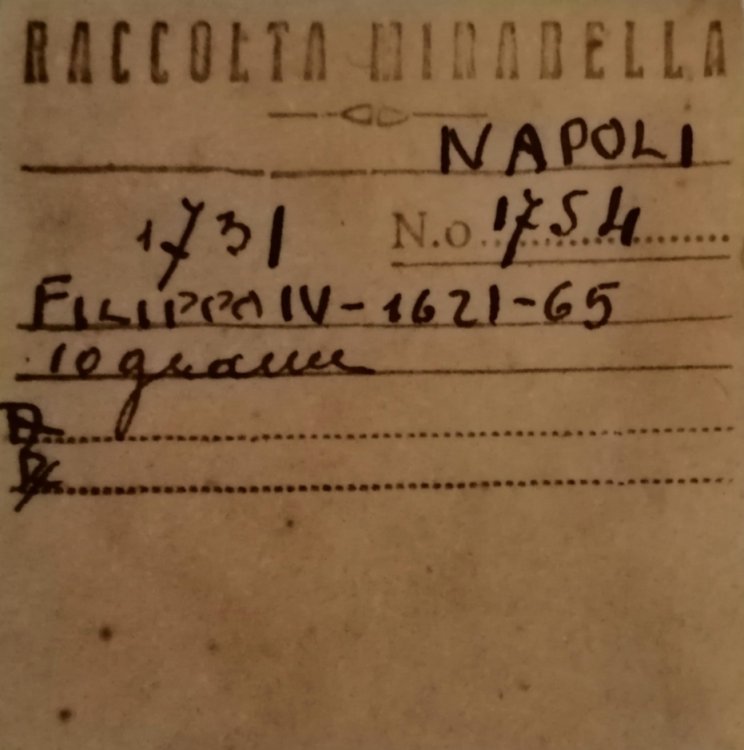 RACCOLTA MIRABELLA
NAPOLI
1731 N.o 1754
FILIPPO IV - 1621-65
10 grana
D